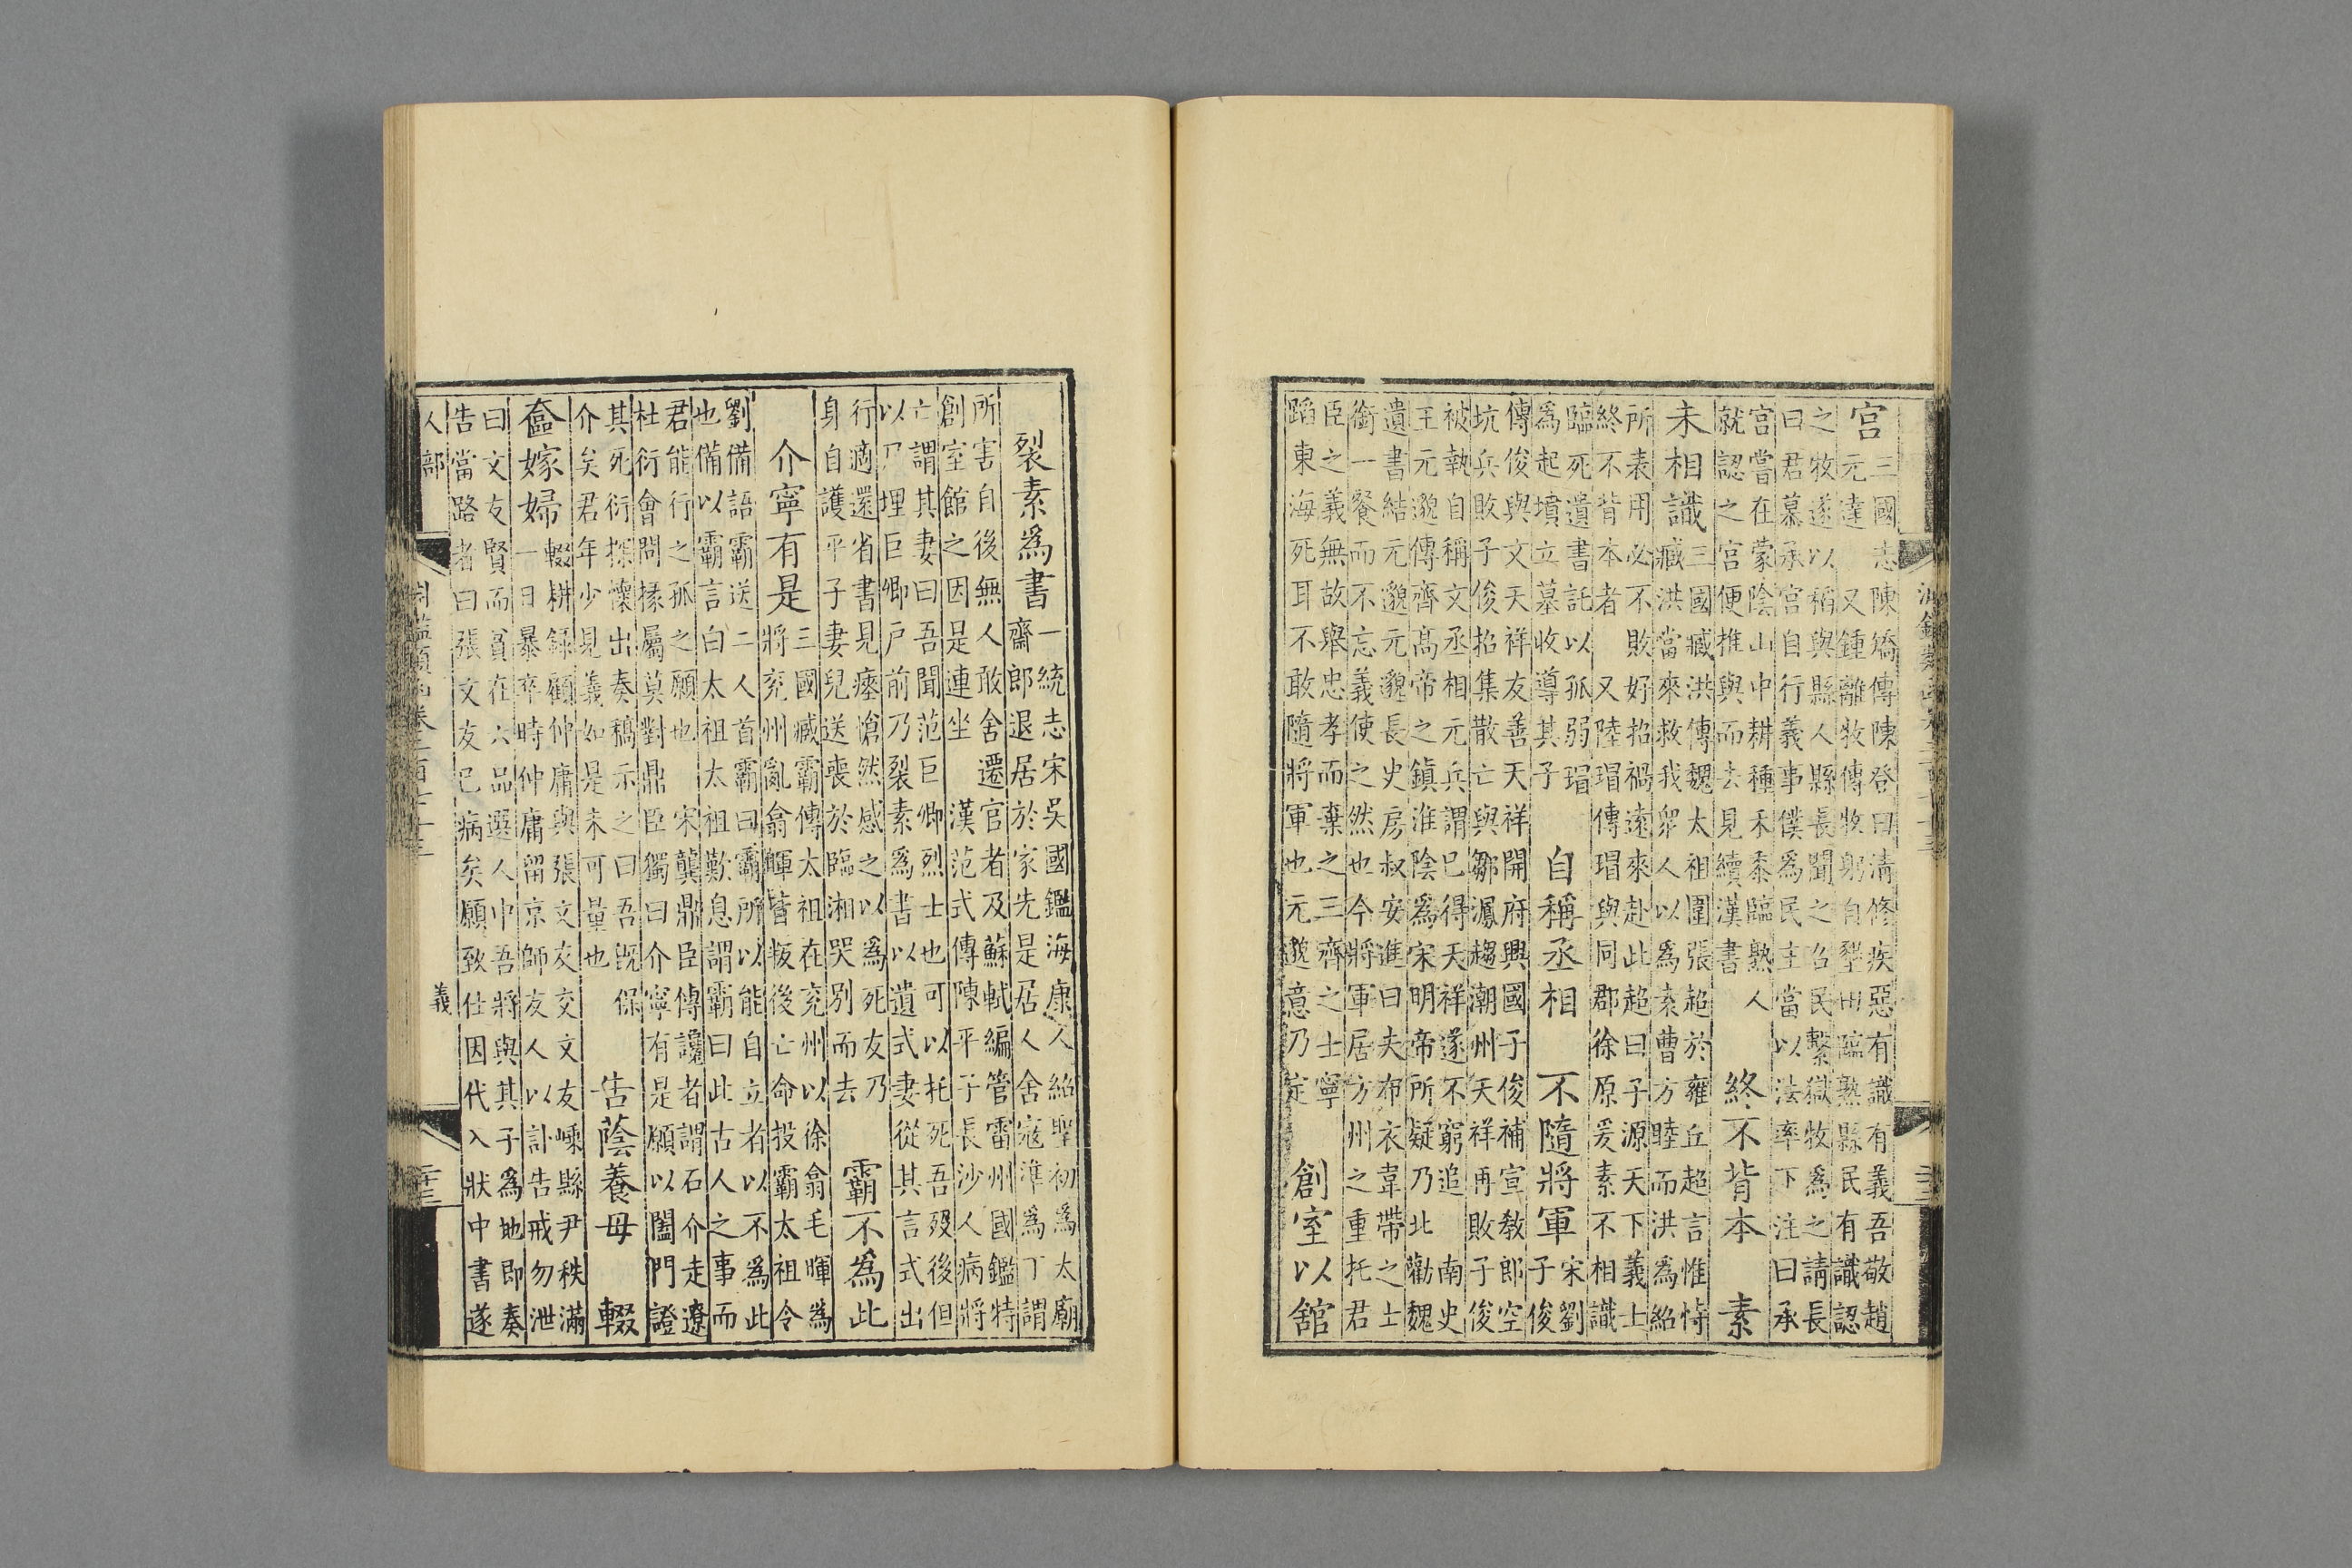 宮
三國志陳矯傳陳登曰清修疾惡有識有義吾敬趙
元達　又鍾離牧傳牧躬自墾田臨熟縣民有識認
之牧遂以稻與縣人縣長聞之召民繫獄牧爲之請長
曰君慕承宮自行義事僕爲民主當以法率下注曰承
宮嘗在蒙陰山中耕種禾黍臨熟人
就認之宮便推與而去見續漢書
終不背本　素
未相識
三國臧洪傳魏太祖圍張超於雍丘超言惟恃
臧洪當來救我衆人以爲素曹方睦而洪爲紹
所表用必不敗好招禍遠來赴此超曰子源天下義士
終不背本者　又陸瑁傳瑁與同郡徐原爰素不相識
臨死遺書託以孤弱瑁
爲起墳立墓收導其子
自稱丞相　不隨將軍
宋劉
子俊
傳俊與文天祥友善天祥開府興國子俊補宣教郎空
坑兵敗子俊招集散亡與鄒㵯趨潮州天祥再敗子俊
被執自稱文丞相元兵謂已得天祥遂不窮追　南史
王元邈傳齊高帝之鎮淮陰爲宋明帝所疑乃北勸魏
遺書結元邈元邈長史房叔安進曰夫布衣韋帶之士
銜一餐而不忘義使之然也今將軍居方州之重托君
臣之義無故舉忠孝而棄之三齊之士寧
蹈東海死耳不敢隨將軍也元邈意乃定
創室以館
裂素爲書
一統志宋吳國鑑海康人紹聖初爲太廟
齋郎退居於家先是居人舍寇準爲丁謂
所害自後無人敢舍遷官者及蘇軾編管雷州國鑑特
創室館之因是連坐　漢范式傳陳平子長沙人病將
亡謂其妻曰吾聞范巨卿烈士也可以托死吾歿後但
以尸埋巨卿戶前乃裂素爲書以遺式妻從其言式出
行適還省書見瘞愴然感之以爲死友乃
身自護平子妻兒送喪於臨湘哭別而去
霸不爲此
介寧有是
三國臧霸傳太祖在兗州以徐翕毛暉爲
將兗州亂翕暉皆叛後亡命投霸太祖令
劉備語霸送二人首霸曰霸所以能自立者以不爲此
也備以霸言白太祖太祖歎息謂霸曰此古人之事而
君能行之孤之願也　宋龔鼎臣傳讒者謂石介走遼
杜衍會問掾屬莫對鼎臣獨曰介寧有是願以闔門證
其死衍探懷出奏稿示之曰吾既保
介矣君年少見義如是未可量也
告蔭養母　輟
奩嫁婦
輟耕錄顧仲庸與張文友交文友嵊縣尹秩滿
一日暴卒時仲庸留京師友人以訃告戒勿泄
曰文友賢而貧在六品選人中吾將與其子爲地即奏
告當路者曰張文友已病矣願致仕因代入狀中書遂
人部
義